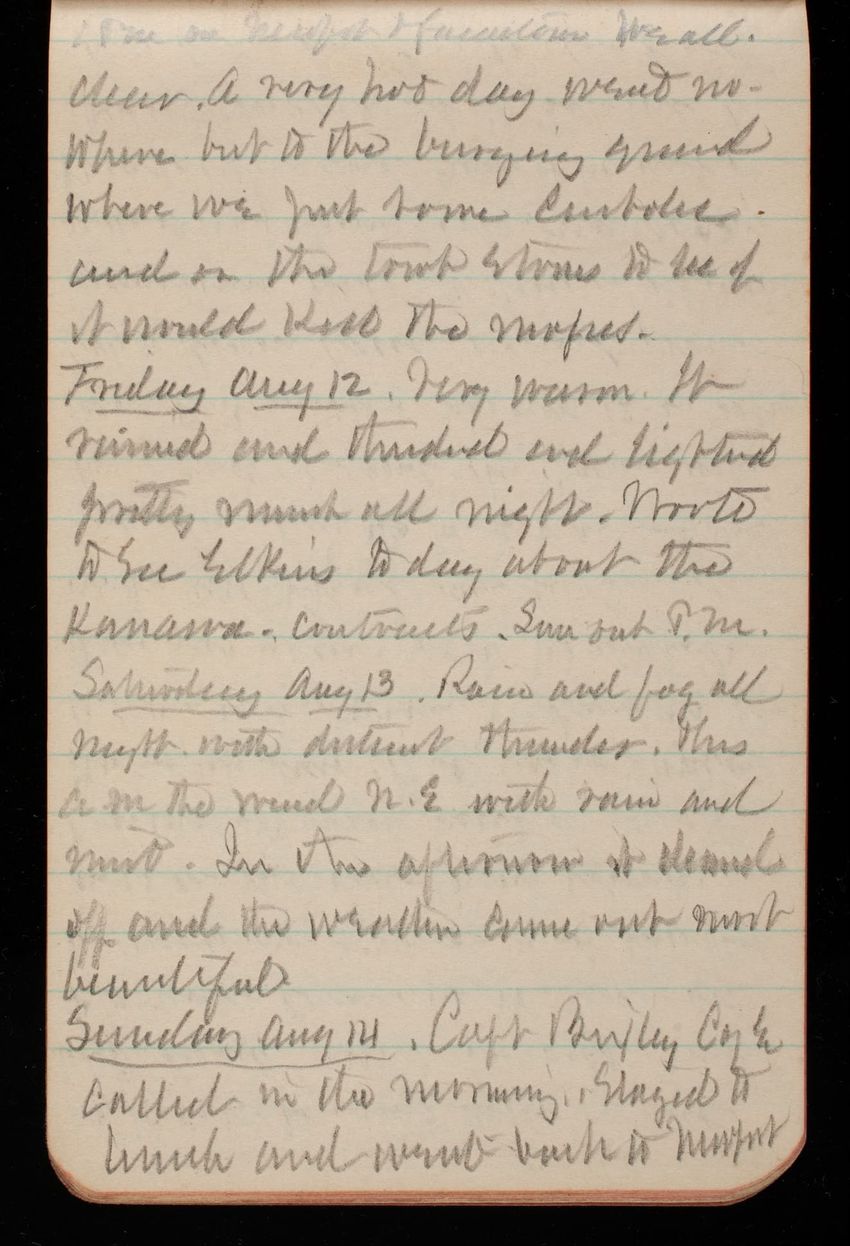 P.M. on Newport & Jamestown We all.
clear. A very hot day went no-
where but to the burying ground
where we put some Carbolic.
and on the tomb Stones to see if
it would kill the mosses.
Friday Aug 12. Very warm. It
rained and thundred and lightned
pretty much all night. Wrote
to Geo Elkins to day about the
Kanawa. contracts. Sun out P.M.
Saturday Aug 13. Rain and fog all
night. with distant thunder. This
a m the wind N.E with rain and
mist. In the afternoon it cleared
off and the weather came out most
beautiful
Sunday Aug 14. Capt Bixley Co E
called in the morning. Stayed to
lunch and went back to Newport